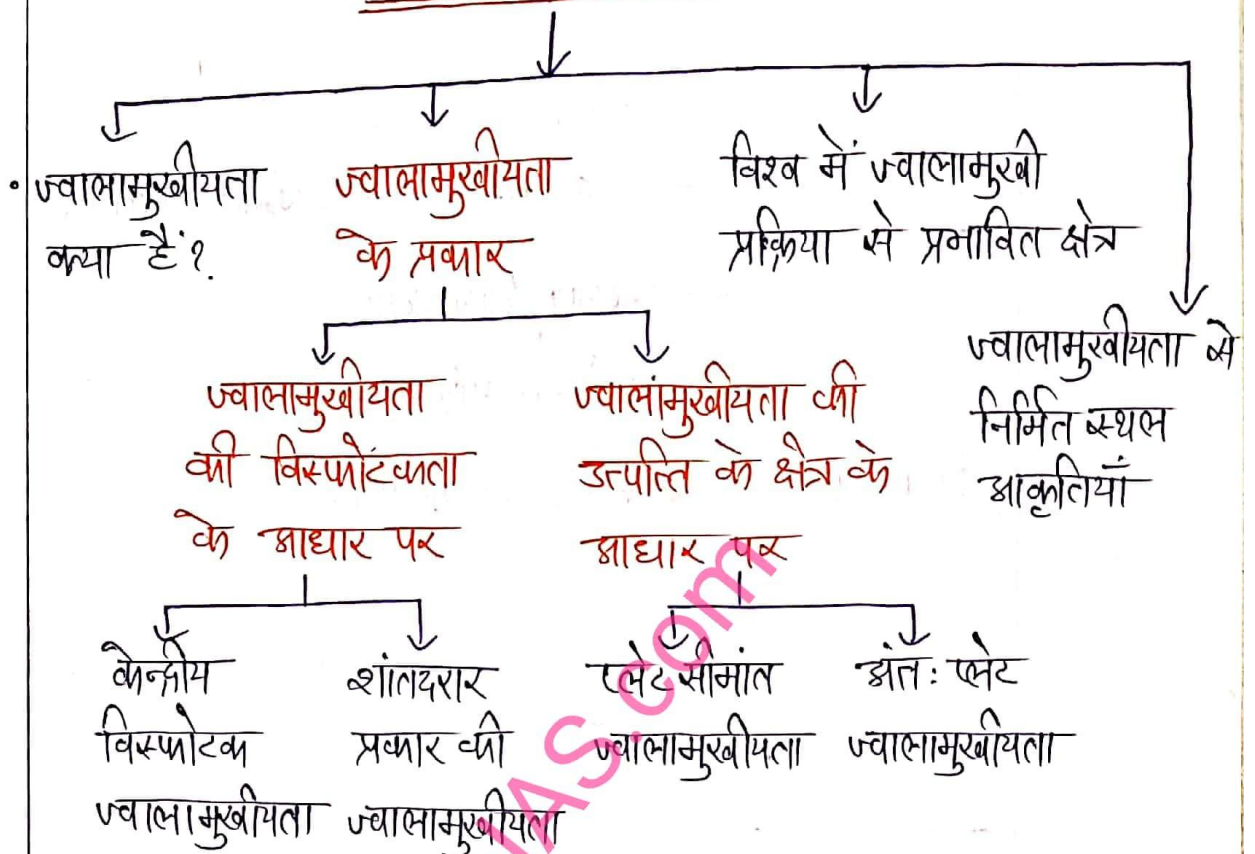 ज्वालामुखीयता
क्या है?
ज्वालामुखीयता
के प्रकार
विश्व में ज्वालामुखी
प्रक्रिया से प्रभावित क्षेत्र
ज्वालामुखीयता से
निर्मित स्थल
आकृतियाँ
ज्वालामुखीयता
की विस्फोटकता
के आधार पर
ज्वालामुखीयता की
उत्पत्ति के क्षेत्र के
आधार पर
केन्द्रीय
विस्फोटक
ज्वालामुखीयता
शांतदरार
प्रकार की
ज्वालामुखीयता
प्लेट सीमांत
ज्वालामुखीयता
अंत: प्लेट
ज्वालामुखीयता
IAS.com